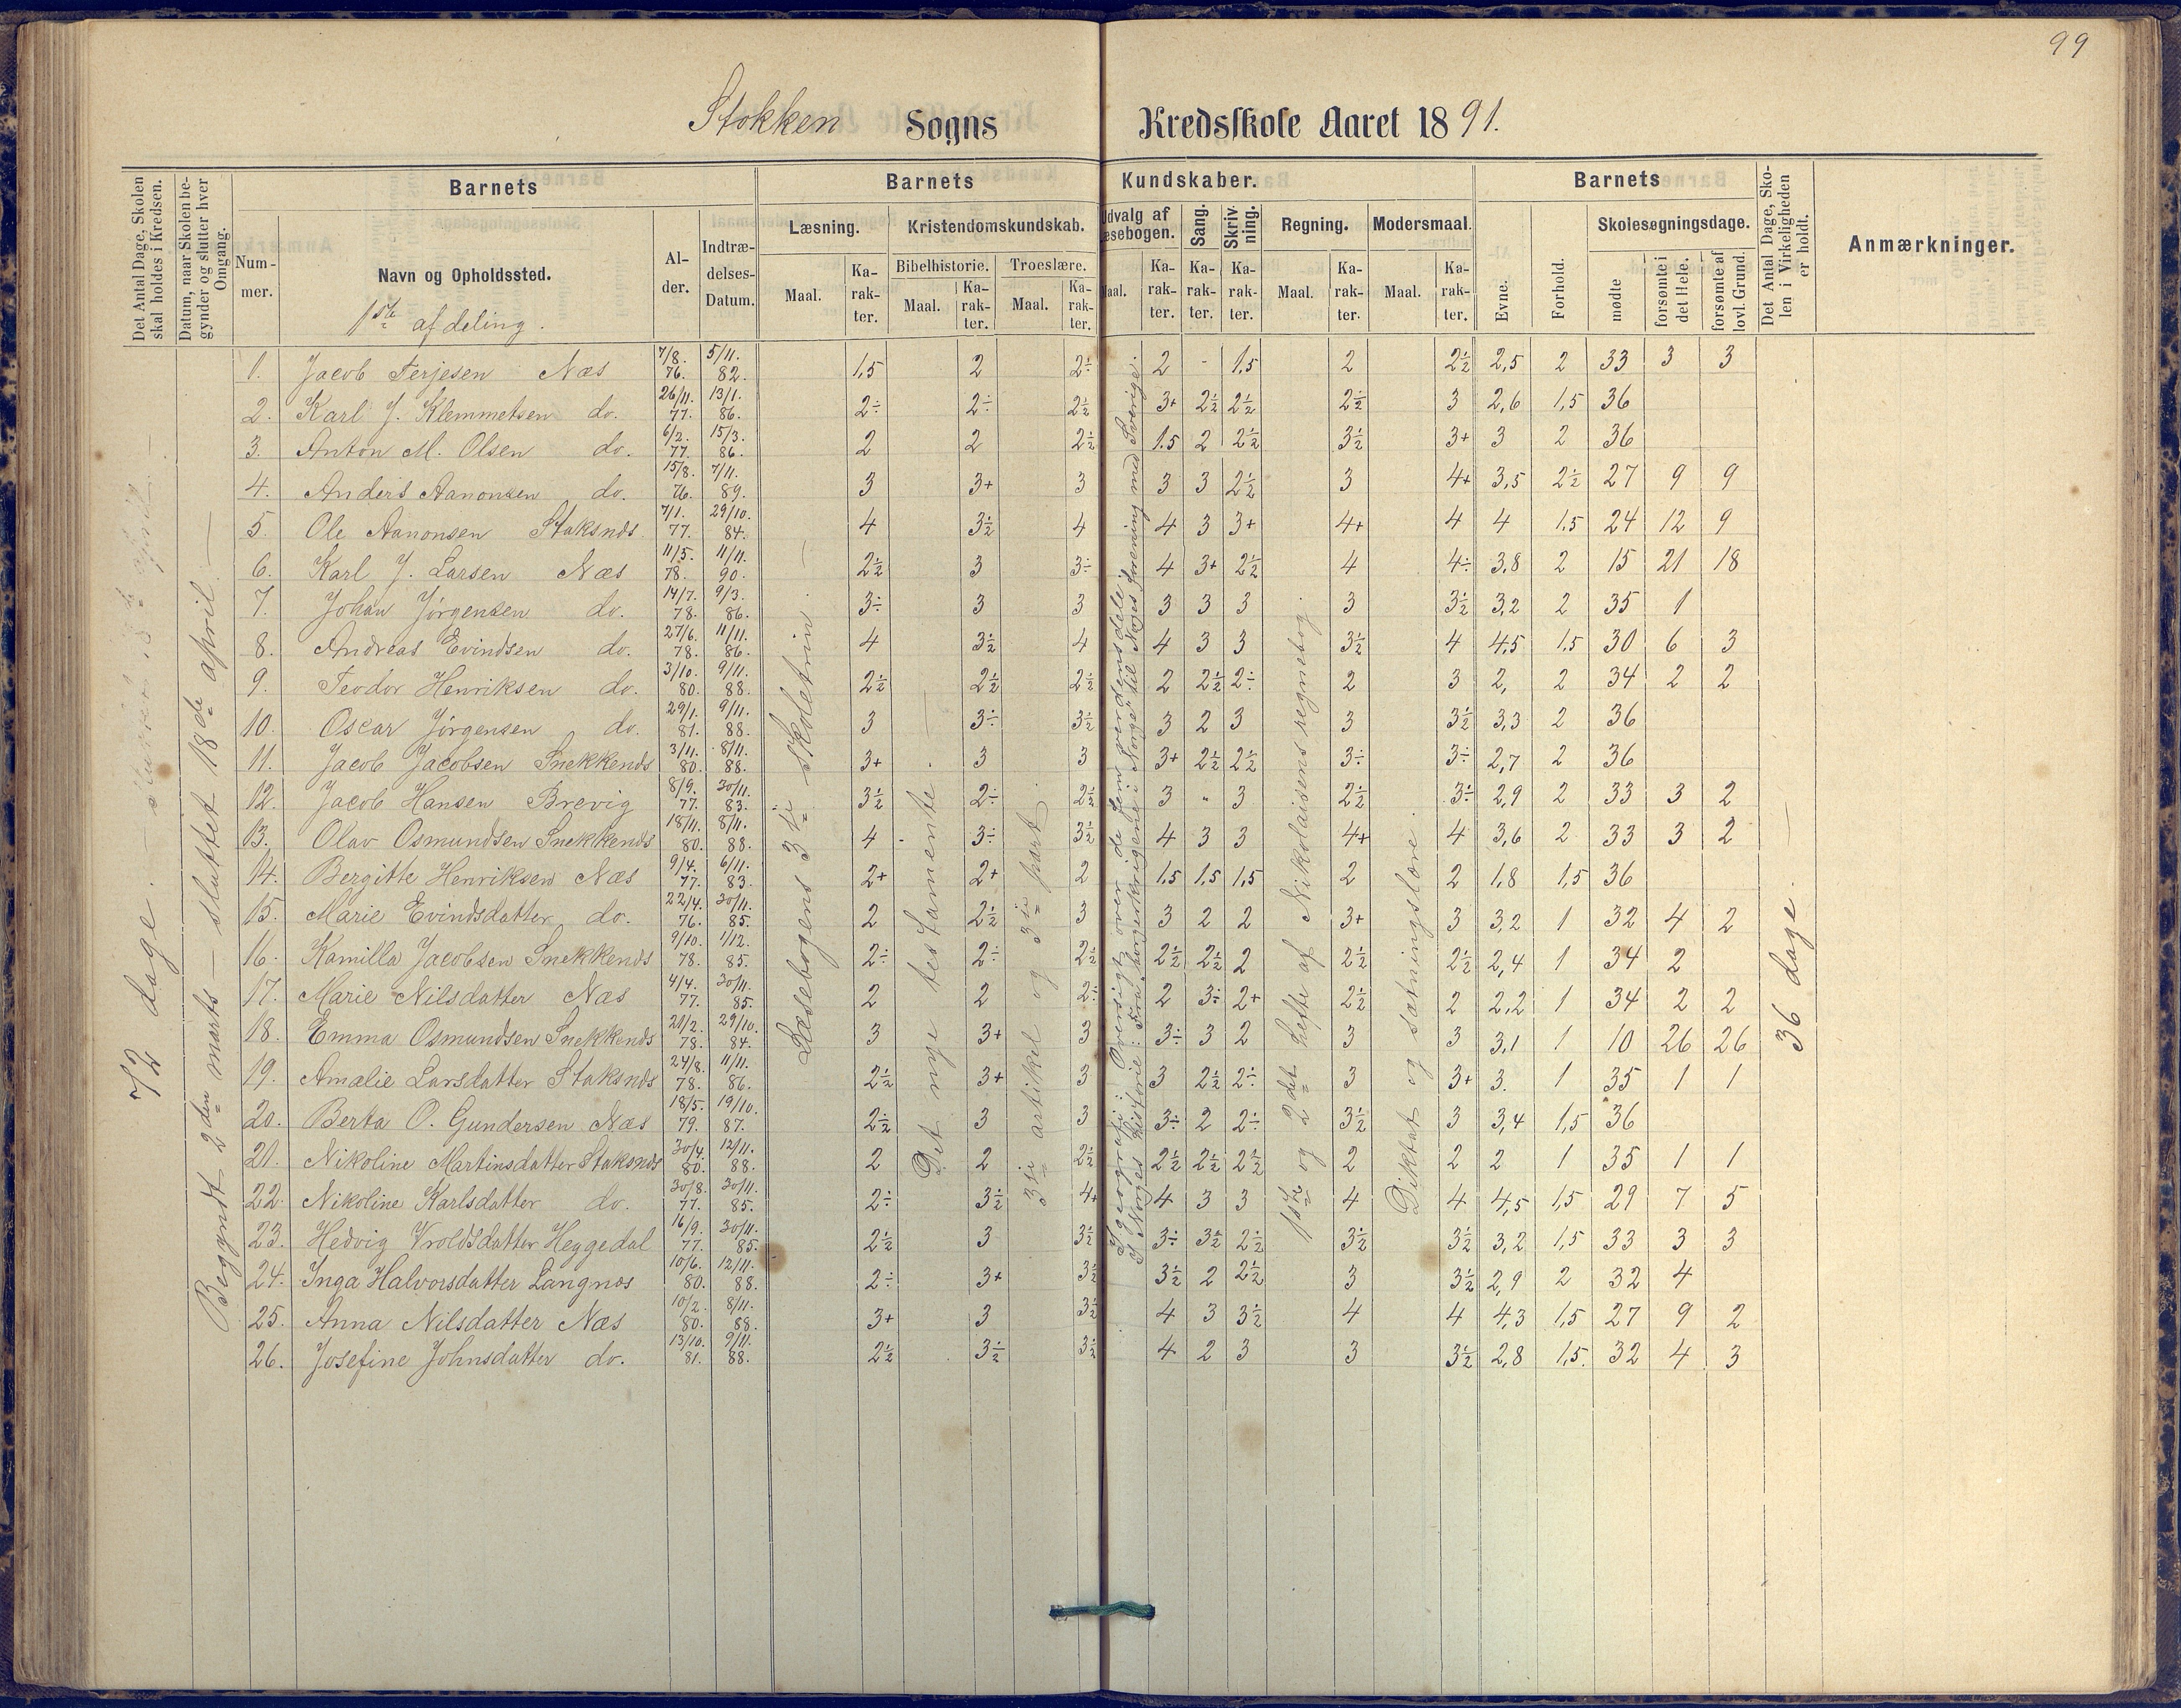 99
Stokken Sogns Kredsskole Aaret 1891.
Det Antal Dage, Skolen skal holdes i Kredsen.
Datum, naar Skolen begynder og slutter hver Omgang.
Barnets
Nummer.
Navn og Opholdssted.
1ste afdeling.
Alder.
Indtrædelses-Datum.
Barnets Kundskaber.
Læsning. Maal. Karakter.
Kristendomskundskab.
Bibelhistorie. Maal. Karakter.
Troeslære. Maal. Karakter.
Udvalg af Læsebogen. Maal. Karakter.
Sang. Karakter.
Skrivning. Karakter.
Regning. Maal. Karakter.
Modersmaal. Maal. Karakter.
Barnets
Evne.
Forhold.
Skolesøgningsdage.
mødte
forsømte i det Hele.
forsømte af lovl. Grund.
Det Antal Dage, Skolen i Virkeligheden er holdt.
Anmærkninger.
72 dage.
Begyndt 2den marts – sluttet 18de april.
Læsebogens 3die skoletrin.
Det nye testamente
3die artikel og 3die part.
I geografi: Oversigt over de fem verdensdele.
I Norges historie: Fra "borgerkrigene i Norge" til Norges forening med Sverige.
1ste og 2det hefte af Nikolaisens regnebog.
Diktat og sætningslære.
36 dage.
1. Jacob Terjesen Næs 7/8. 76. 5/11. 82. 1,5 2 2÷ 2 - 1,5 2 2½ 2,5 2 33 3 3
2. Karl J. Klemmetsen do. 26/11. 77. 13/1. 86. 2÷ 2÷ 2½ 3+ 2½ 2½ 2½ 3 2,6 1,5 36
3. Anton M. Olsen do. 6/2. 77. 15/3. 86. 2 2 2½ 1.5 2 2½ 3½ 3+ 3 2 36
4. Anders Aanonsen do. 15/8. 76. 7/11. 89. 3 3+ 3 3 3 2½ 3 4+ 3,5 2½ 27 9 9
5. Ole Aanonsen Staksnds 7/1. 77. 29/10. 84. 4 3½ 4 4 3 3+ 4+ 4 4 1.5 24 12 9
6. Karl J. Larsen Næs 11/5. 78. 11/11. 90. 2½ 3 3÷ 4 3+ 2½ 4 4÷ 3.8 2 15 21 18
7. Johan Jørgensen do. 14/7. 78. 9/3. 86. 3÷ 3 3 3 3 3 3 3½ 3,2 2 35 1
8. Andreas Evindsen do. 27/6. 78. 11/11. 86. 4 3½ 4 4 3 3 3½ 4 4,5 1.5 30 6 3
9. Teodor Henriksen do. 3/10. 80. 9/11. 88. 2½ 2½ 2½ 2 2½ 2÷ 2 3 2, 2 34 2 2
10. Oscar Jørgensen do. 29/1. 81. 9/11. 88. 3 3÷ 3½ 3 2 3 3 3½ 3,3 2 36
11. Jacob Jacobsen Snekkends 3/11. 80. 8/11. 88. 3+ 3 3 3+ 2½ 2½ 3÷ 3÷ 2,7 2 36
12. Jacob Hansen Brevig 8/9. 77. 30/11. 83. 3½ 2÷ 2½ 3 " 3 2½ 3÷ 2,9 2 33 3 2
13. Olav Osmundsen Snekkends 18/11. 80. 8/11. 88. 4 3÷ 3½ 4 3 3 4+ 4 3,6 2 33 3 2
14. Bergitte Henriksen Næs 9/4. 77. 6/11. 83. 2+ 2+ 2 1,5 1,5 1,5 2 2 1,8 1,5 36
15. Marie Evindsdatter do. 22/4. 76. 30/11. 85. 2 2½ 3 3 2 2 3+ 3 3,2 1 32 4 2
16. Kamilla Jacobsen Snekkends 9/10. 78. 1/12. 85. 2÷ 2÷ 2½ 2½ 2½ 2 2½ 2½ 2,4 1 34 2
17. Marie Nilsdatter Næs 4/4. 77. 30/11. 85. 2 2 2÷ 2 3÷ 2+ 2½ 2 2,2 1 34 2 2
18. Emma Osmundsen Snekkends 21/2. 78. 29/10. 84. 3 3+ 3 3÷ 3 2 3 3 3,1 1 10 26 26
19. Amalie Larsdatter Staksnds 24/8. 78. 11/11. 86. 2½ 3+ 3 3 2½ 2÷ 3 3+ 3. 1 35 1 1
20. Berta O. Gundersen Næs 18/5. 79. 19/10. 87. 2½ 3 3 3÷ 2 2÷ 3½ 3 3,4 1,5 36
21. Nikoline Martinsdatter Staksnds 30/4. 80. 12/11. 88. 2 2 2½ 2½ 2½ 2½ 2 2 2 1 35 1 1
22. Nikoline Karlsdatter do. 30/8. 77. 30/11. 85. 2÷ 3½ 4+ 4 3 3 4 4 4,5 1,5 29 7 5
23. Hedvig Vroldsdatter Heggedal 16/9. 77. 30/11. 85. 2½ 3 3½ 3÷ 3½ 2½ 3½ 3½ 3,2 1,5 33 3 3
24. Inga Halvorsdatter Langnæs 10/6. 80. 12/11. 88. 2÷ 3+ 3½ 3½ 2 2½ 3 3½ 2,9 2 32 4
25. Anna Nilsdatter Næs 10/2. 80. 8/11. 88. 3+ 3 3½ 4 3 3½ 4 4 4,3 1,5 27 9 2
26. Josefine Johnsdatter do. 13/10. 81. 9/11. 88. 2½ 3½ 3½ 4 2 3 3 3½ 2,8 1,5. 32 4 3